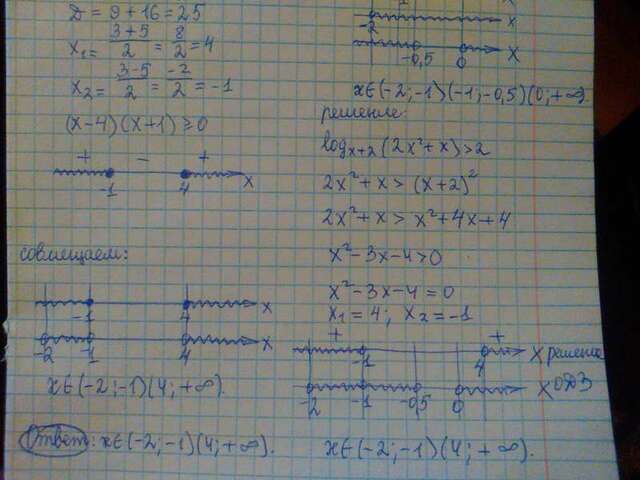 D = 9+16 = 25
x₁ = (3+5)/2 = 8/2 = 4
x₂ = (3-5)/2 = -2/2 = -1
(x-4)(x+1) ≥ 0
+ - +
-1 4 x
совмещаем:
-1 4 x
-2 -1 4 x
x∈(-2;-1)(4;+∞).
Ответ: x∈(-2;-1)(4;+∞).
-2 x
-0,5 0 x
x∈(-2;-1)(-1;-0,5)(0;+∞).
решение:
logₓ₊₂(2x²+x)>2
2x²+x > (x+2)²
2x²+x > x²+4x+4
x²-3x-4>0
x²-3x-4=0
x₁=4; x₂=-1
+ +
-1 4 x решение
-2 -1 -0,5 0 x ОДЗ
x∈(-2;-1)(4;+∞).